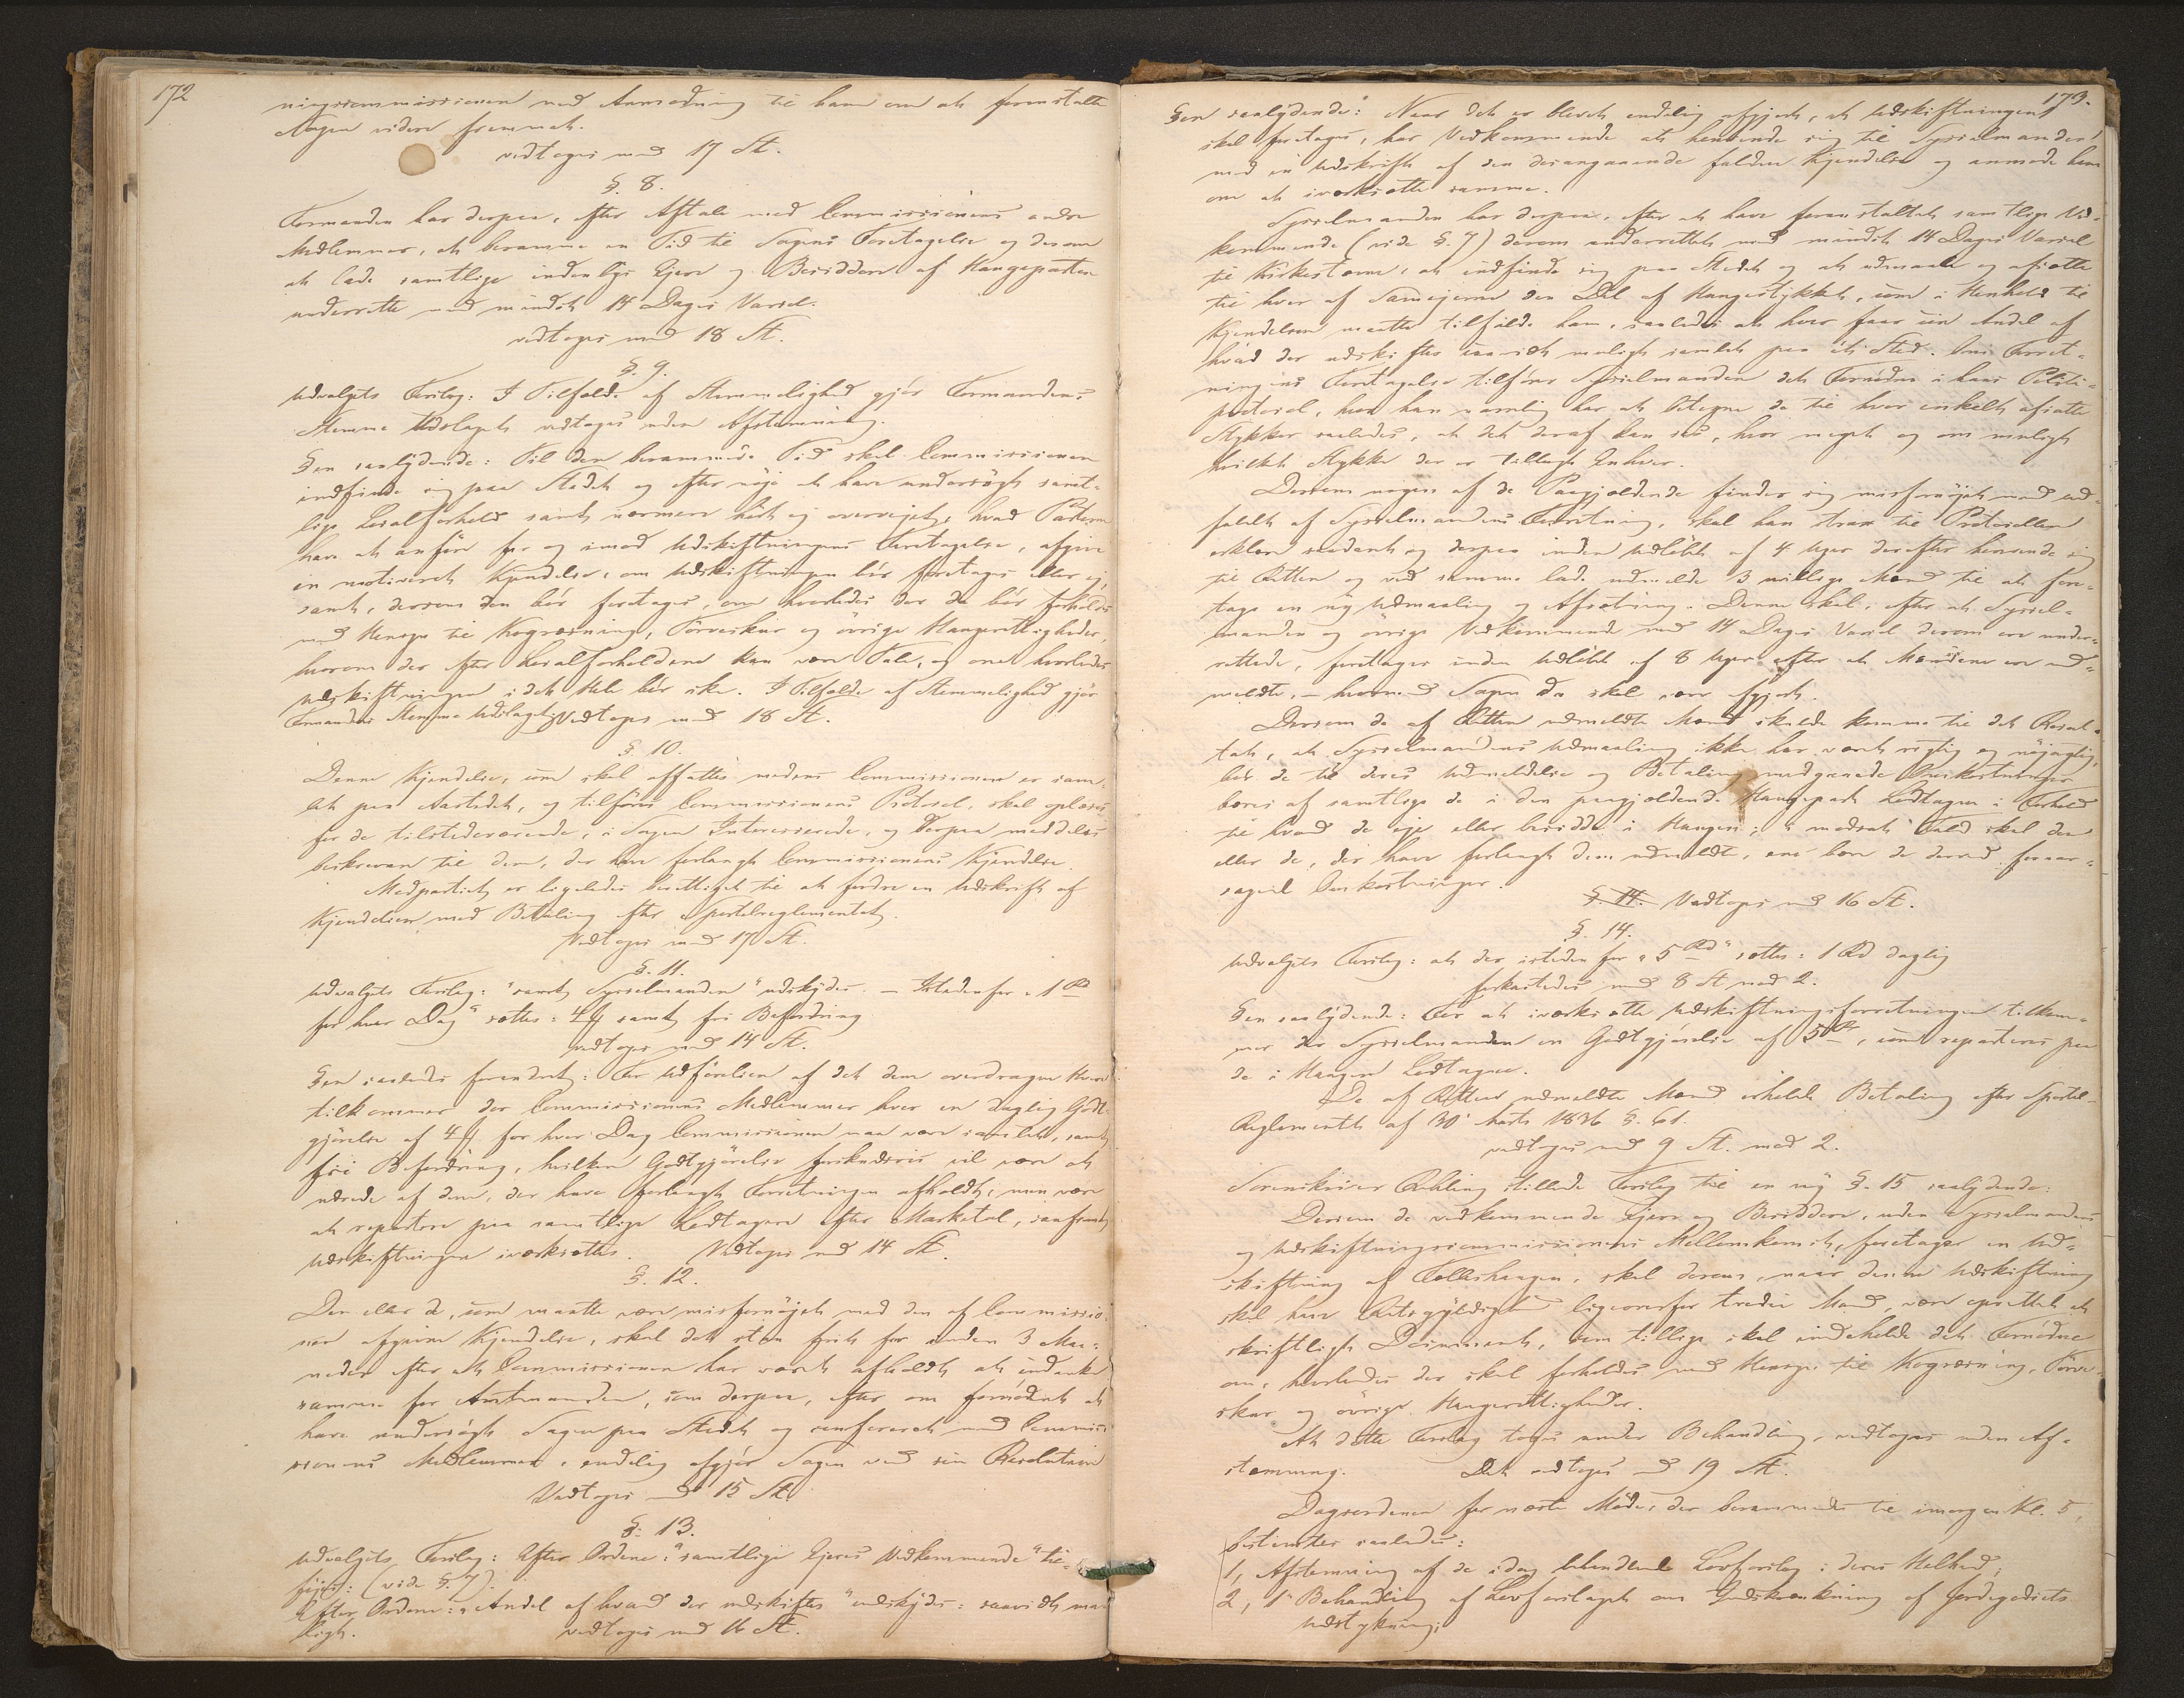 172
ningscommissionen med Anmodning til ham om at foranstalte
Sagen videre fremmet.
vedtoges med 17 St.
§. 8.
Formanden har derpaa, efter Aftale med Commissionens andre
Medlemmer, at beramme en Tid til Sagens Foretagelse og derom
at lade samtlige indenbygs Ejere og Besiddere af Haugeparten
underrette med mindst 14 Dages Varsel.
vedtoges med 18 St.
§. 9.
Udvalgets Forslag: I Tilfælde af Stemmelighed gjør Formandens
Stemme Udslaget vedtoges uden Afstemning.
§en saalydende: Til den berammede Tid skal Commissionen
indfinde sig paa Stedet og efter nøje at have undersøgt samt-
lige Localforhold samt nærmere hørt og overvejet, hvad Parterne
have at anføre for og imod Udskiftningens Foretagelse, afgive
en motiveret Kjendelse, om Udskiftningen bør foretages eller ej,
samt, dersom den bør foretages, om hvorledes der da bør forholdes
med Hensyn til Kogræsning, Tørveskær og øvrige Haugerettigheder,
hvorom der efter Localforholdene kan være Tale, og om hvorledes
Udskiftningen i det Hele bør ske. I Tilfælde af Stemmelighed gjør
Formandens Stemme Udslaget. Vedtoges med 18 St.
§. 10.
Denne Kjendelse, som skal affattes medens Commissionen er sam-
let paa Aastedet, og tilføres Commissionens Protocol, skal oplæses
for de tilstedeværende, i Sagen Interesserede, og derpaa meddeles
beskreven til dem, der have forlangt Commissionens Kjendelse.
Modpartiet er ligeledes berettiget til at fordre en Udskrift af
Kjendelsen mod Betaling efter Sportelreglementet.
Vedtoges med 17 St.
§. 11.
Udvalgets Forslag: "samt Sysselmanden" udskydes. — Istedenfor "1 Rd
for hver Dag" sættes: 4 ℔ samt fri Befordring
vedtoges med 14 St.
§en saaledes forandret: For Udførelsen af det dem overdragne Hverv
tilkommer der Commissionens Medlemmer hver en daglig Godt-
gjørelse af 4 ℔ for hver Dag Commissionen maa være samlet, samt
fri Befordring, hvilken Godtgjørelse forskudsvis vil være at
udrede af dem, der have forlangt Forretningen afholdt, men være
at repartere paa samtlige Lodtagere efter Marketal, saafremt
Udskiftningen iværksættes. Vedtoges med 14 St.
§. 12.
Den eller de, som maatte være misfornøjet med den af Commissio-
nen afgivne Kjendelse, skal det staa frit for inden 3 Maa-
neder efter at Commissionen har været afholdt at indanke
samme for Amtmanden, som derpaa, efter om fornødent at
have undersøgt Sagen paa Stedet og confereret med Commis-
sionens Medlemmer, endelig afgjør Sagen ved sin Resolution
Vedtoges med 15 St.
§. 13.
Udvalgets Forslag: Efter Ordene: "samtlige Ejeres Vedkommende" til-
føjes: (vide §. 7).
Efter Ordene: "Andel af hvad der udskiftes" indskydes: saavidt mu-
ligt. vedtoges med 16 St.
173.
§en saalydende: Naar det er blevet endelig afgjort, at Udskiftningen
skal foretages, har Vedkommende at henvende sig til Sysselmanden
med en Udskrift af den desangaaende faldne Kjendelse og anmode ham
om at iværksætte samme.
Sysselmanden har derpaa, efter at have foranstaltet samtlige Ved-
kommende (vide §. 7) derom underrettet med mindst 14 Dages Varsel
til Kirkestævne, at indfinde sig paa Stedet og at udmaale og afsætte
til hver af Samejerne den Del af Haugestykket, som i Henhold til
Kjendelsen maatte tilfalde ham, saaledes at hver faar sin Andel af
hvad der udskiftes saavidt muligt samlet paa ét Sted. Om Forret-
ningens Foretagelse tilfører Sysselmanden det Fornødne i hans Politi-
protocol, hvor han navnlig har at betegne de til hver enkelt afsatte
Stykker saaledes, at det deraf kan sees, hvor meget og om muligt
hvilket Stykke der er tillagt Enhver.
Dersom nogen af de Paagjældende finder sig misfornøjet med Ud-
faldet af Sysselmandens Forretning, skal han strax til Protocollen
erklære saadant og derpaa inden Udløbet af 4 Uger derefter henvende sig
til Retten og ved samme lade udmelde 3 villige Mænd til at fore-
tage en ny Udmaaling og Afsætning. Denne skal, efter at Syssel-
manden og øvrige Vedkommende med 14 Dages Varsel derom ere under-
rettede, foretages inden Udløbet af 8 Uger efter at Mændene ere ud-
meldte, – hvormed Sagen da skal være afgjort.
Dersom de af Retten udmeldte Mænd skulde komme til det Resul-
tat, at Sysselmandens Udmaaling ikke har været rigtig og nøjagtig,
bør de til deres Udmeldelse og Betaling medgaaede Omkostninger
bæres af samtlige de i den paagjældende Haugepart Lodtagne i Forhold
til hvad de eje eller besidde i Haugen; i modsat Fald skal den
eller de, der have forlangt dem udmeldte, ene bære de derved foraar-
sagede Omkostninger.
§. 14. Vedtoges med 16 St.
§. 14.
Udvalgets Forslag: at der istedenfor "5 Rd" sættes: 1 Rd daglig
forkastedes med 8 St mod 2.
§en saalydende: For at iværksætte Udskiftningsforretningen tilkom-
mer der Sysselmanden en Godtgjørelse af 5 Rd, som reparteres paa
de i Haugen Lodtagne.
De af Retten udmeldte Mænd erholde Betaling efter Sportel-
Reglementet af 30' Marts 1836 §. 61.
vedtoges med 9 St. mod 2.
Sorenskriver Röhling stillede Forslag til en ny §. 15 saalydende:
Dersom de vedkommende Ejere og Besiddere, uden Sysselmandens
og Udskiftningscommissionens Mellemkomst, foretage en Ud-
skiftning af Fælleshaugen, skal derom, naar denne Udskiftning
skal have Retsgyldighed ligeoverfor tredie Mand, være oprettet et
skriftligt Document, som tillige skal indeholde det Fornødne
om, hvorledes der skal forholdes med Hensyn til Kogræsning, Tørve-
skær og øvrige Haugerettigheder.
At dette Forslag toges under Behandling, vedtoges uden Af-
stemning. Det vedtoges med 19 St.
Dagsordenen for næste Møde, der berammedes til imorgen Kl. 5,
bestemtes saaledes:
1, Afstemning af de idag behandlede Lovforslag i deres Helhed,
2, 1' Behandling af Lovforslaget om Indskrænkning af Jordegodsets
Udstykning;